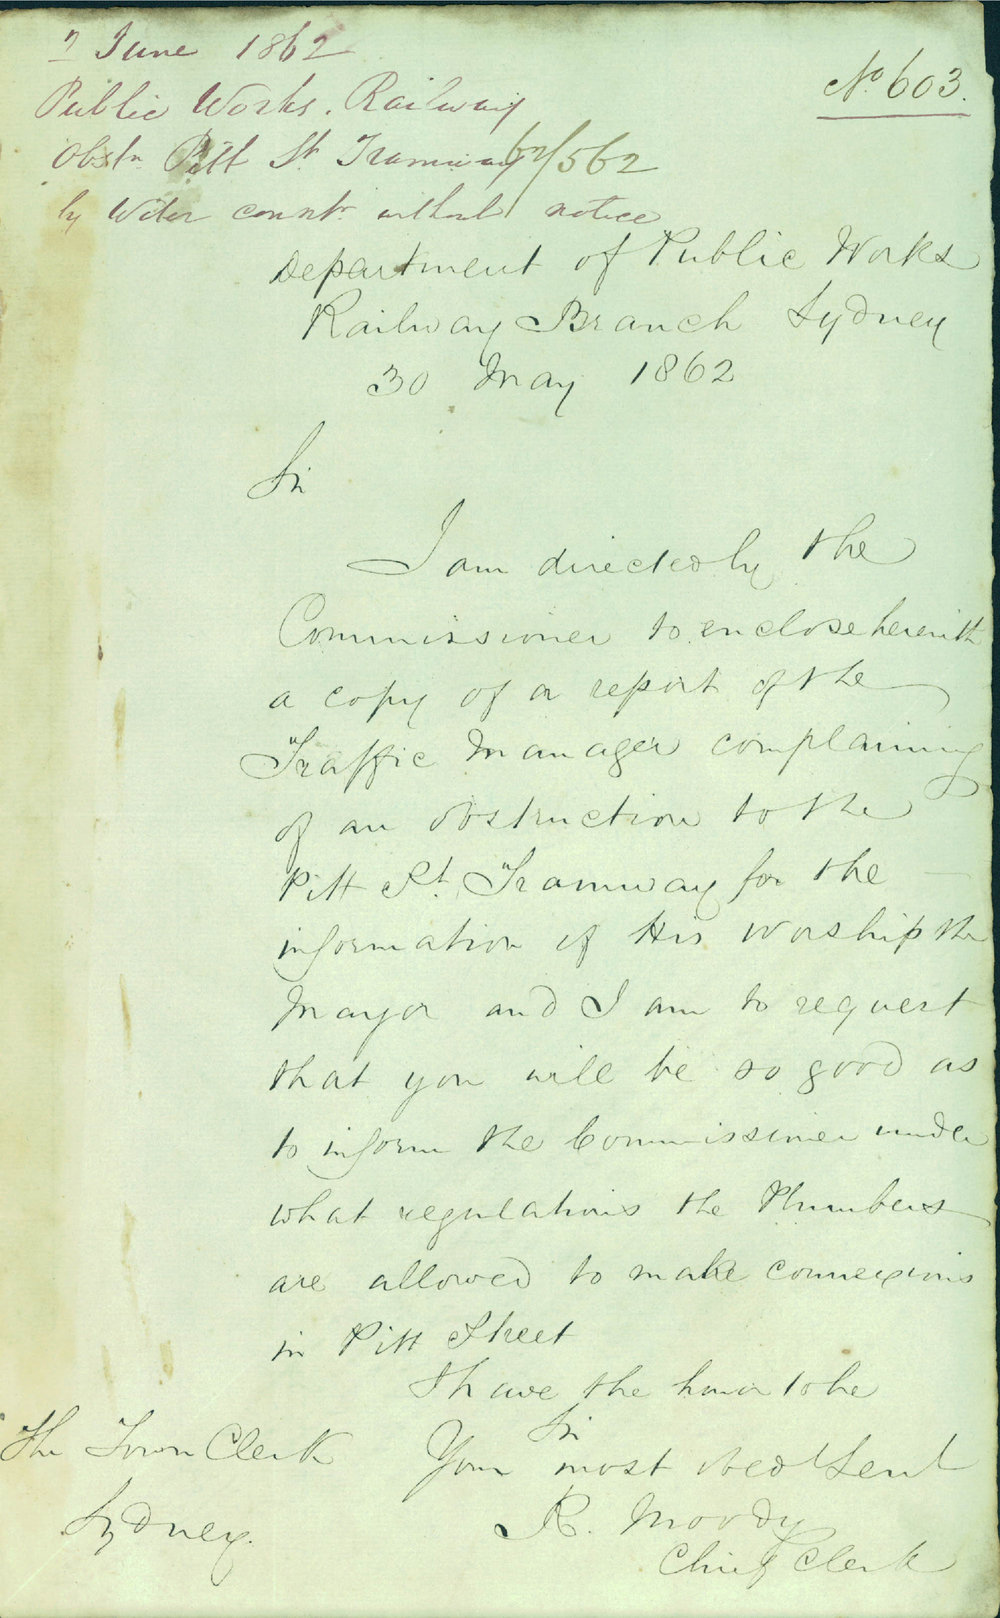 2 June 1862
No 603.
Public Works. Railway
Obstn Pitt St Tramway
62/562
by Water conntn without notice
Department of Public Works
Railway Branch Sydney
30 May 1862
Sir
I am directed by the
Commissioner to enclose herewith
a copy of a report of the
Traffic Manager complaining
of an obstruction to the
Pitt St. Tramway for the
information of His Worship the
Mayor and I am to request
that you will be so good as
to inform the Commissioner under
what regulations the Plumbers
are allowed to make connexions
in Pitt Street
I have the honor to be
Sir
Your most obed Servt
R. Moody
Chief Clerk
The Town Clerk
Sydney.